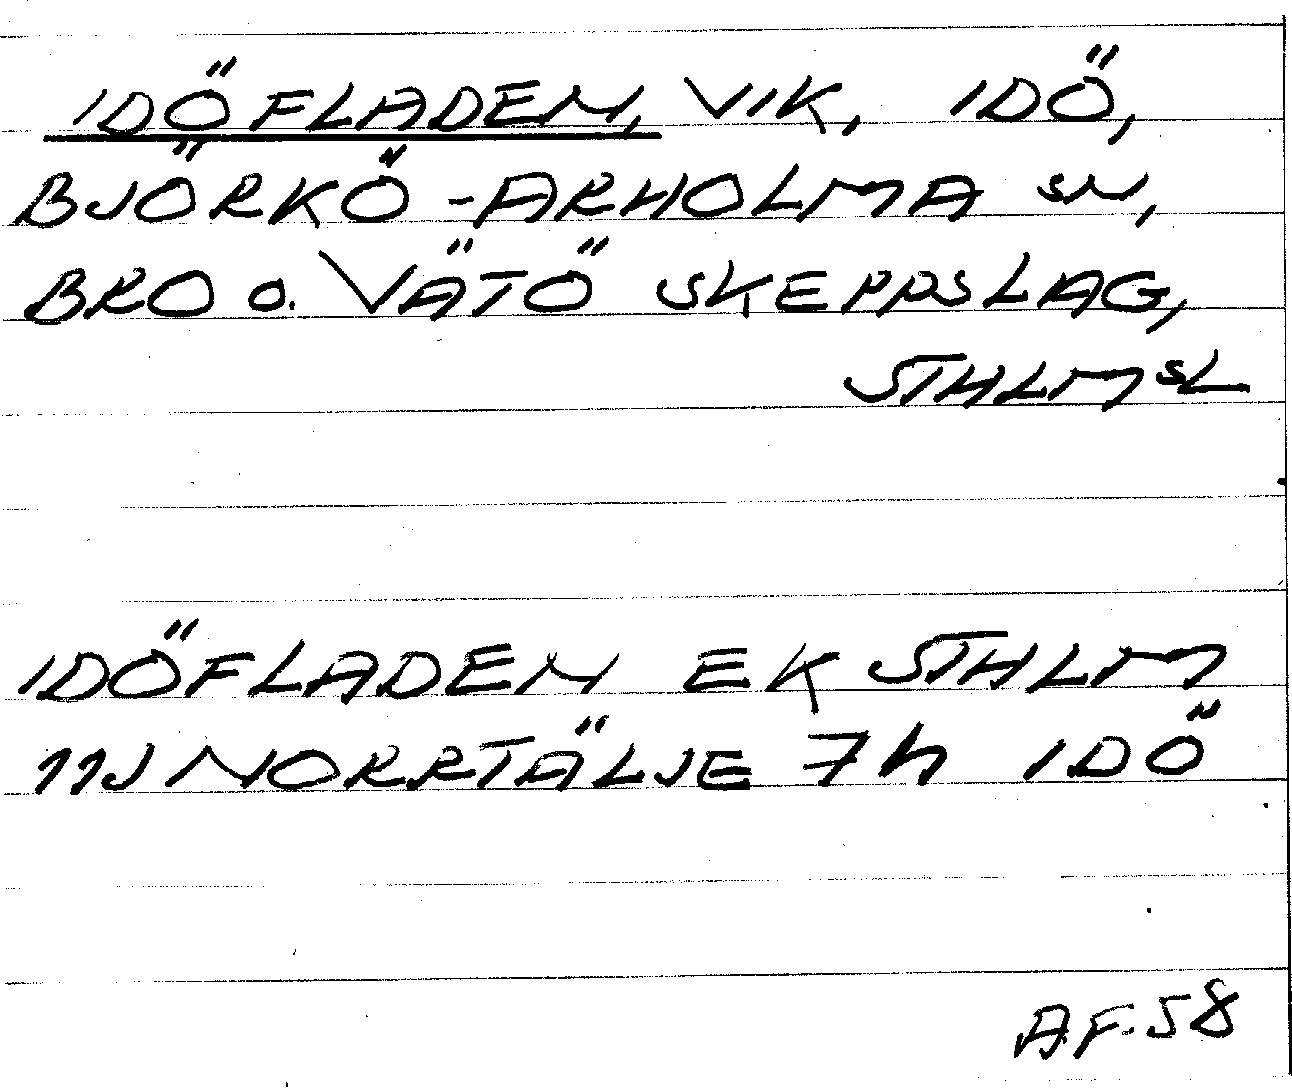 IDÖFLADEN, VIK, IDÖ,
BJÖRKÖ-ARHOLMA SN,
BRO o. VÄTÖ SKEPPSLAG,
STHLMSL
IDÖFLADEN EK STHLM
11J NORRTÄLJE 7h IDÖ
A F. 58